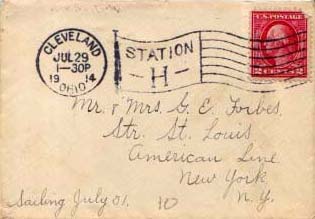 CLEVELAND
JUL 29
1-30P
19 14
OHIO
STATION
- H -
U.S. POSTAGE
2 CENTS 2
Mr. & Mrs. G. E. Forbes.
Str. St. Louis
American Line
New York
N. Y.
Sailing July 31.
10